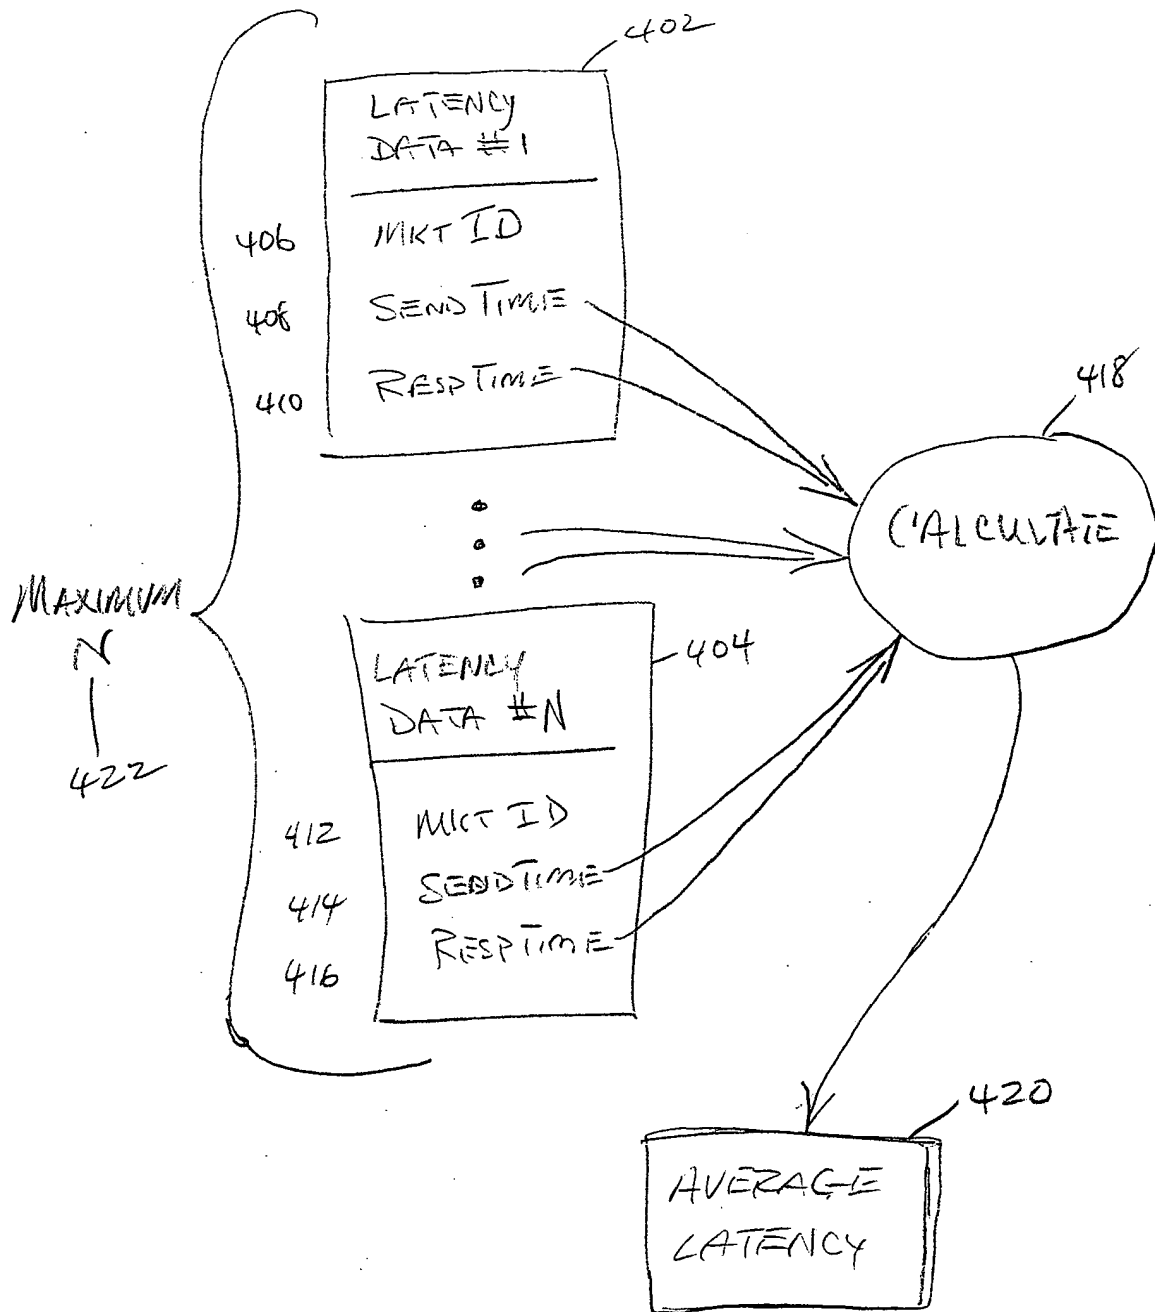 402
LATENCY
DATA #1
406 MKT ID
408 SENDTIME
410 RESPTIME
418
CALCULATE
MAXIMUM
N
422
404
LATENCY
DATA #N
412 MKT ID
414 SENDTIME
416 RESPTIME
420
AVERAGE
LATENCY